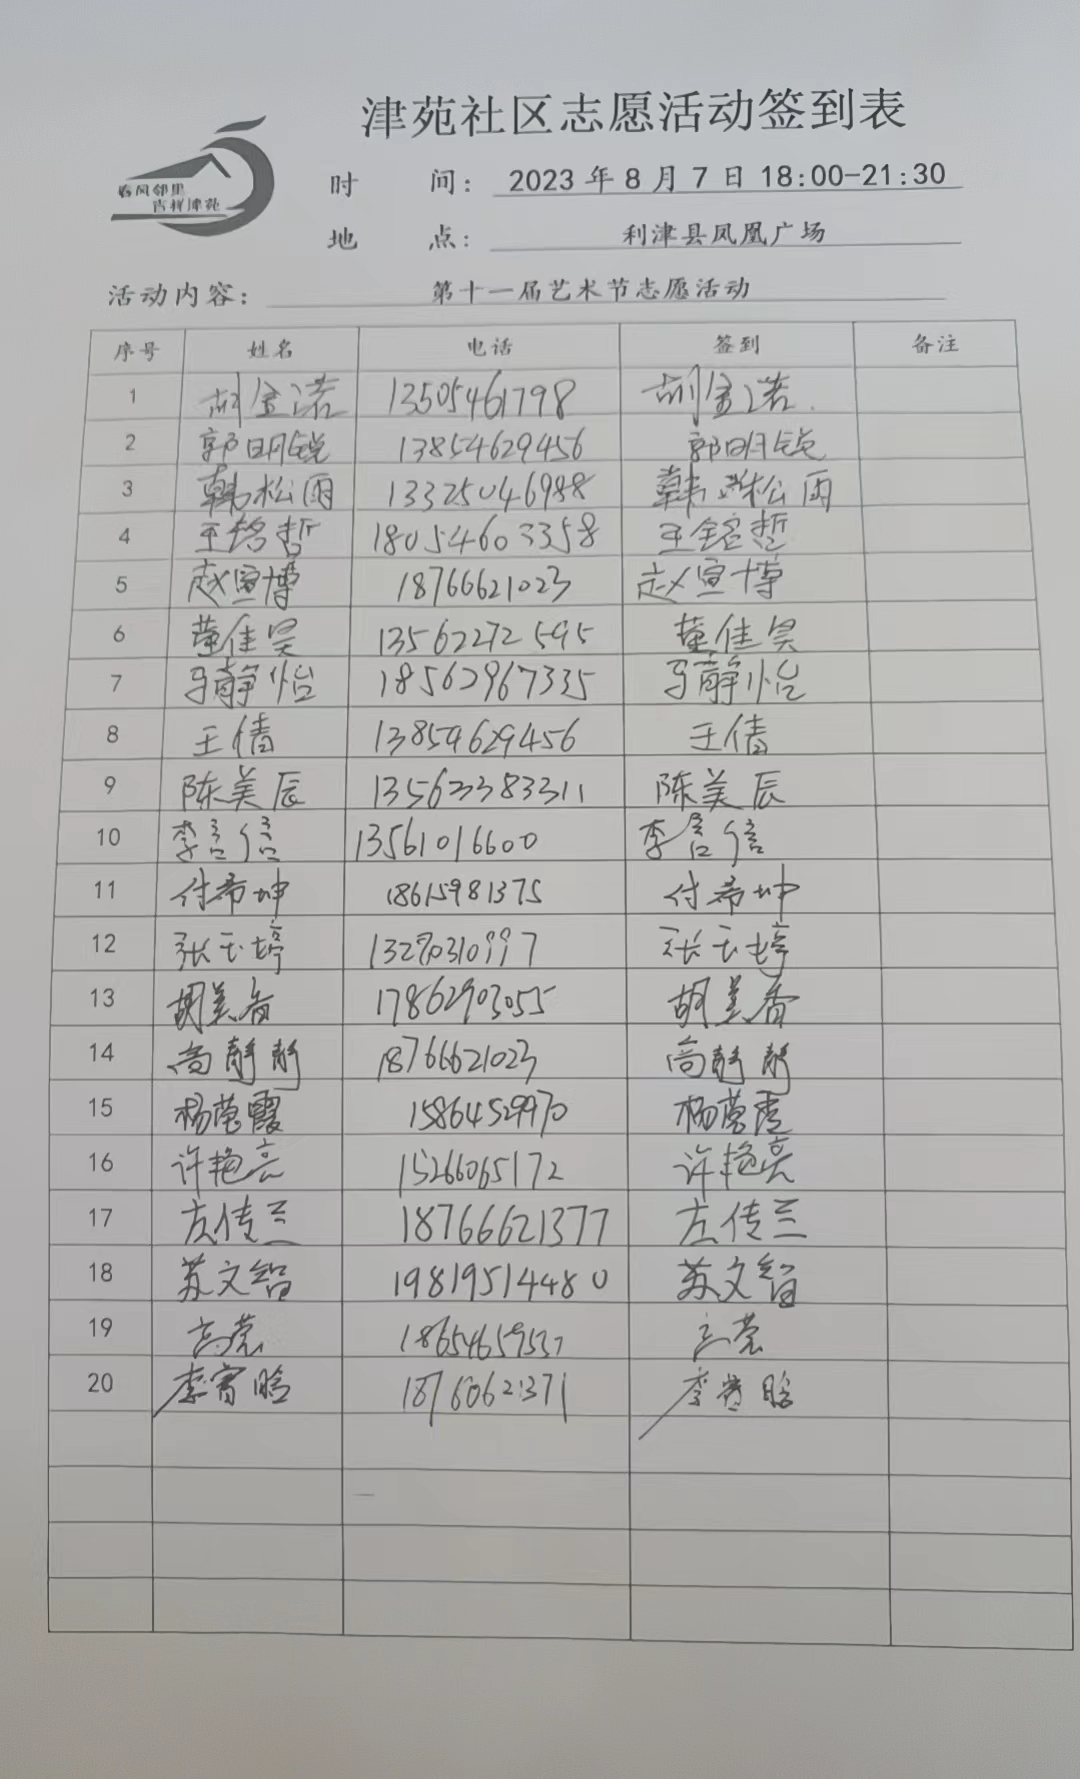 津苑社区志愿活动签到表
春风邻里
吉祥津苑
时 间： 2023 年 8 月 7 日 18:00-21:30
地 点： 利津县凤凰广场
活动内容： 第十一届艺术节志愿活动
序号 姓名 电话 签到 备注
1 胡金诺 13505461798 胡金诺
2 郭明锐 13854629456 郭明锐
3 韩松雨 13325046988 韩松雨
4 王铭哲 18054603358 王铭哲
5 赵宣博 18766621023 赵宣博
6 董佳昊 13562272595 董佳昊
7 马静怡 18562967335 马静怡
8 王倩 13859629456 王倩
9 陈美辰 13562383311 陈美辰
10 李言信 13561016600 李言信
11 付希坤 18615981375 付希坤
12 张玉婷 13270310997 张玉婷
13 胡美香 17862903055 胡美香
14 高静静 18766621023 高静静
15 杨莹霞 15864529970 杨莹霞
16 许艳亮 15266065172 许艳亮
17 左传兰 18766621377 左传兰
18 苏文智 19819514480 苏文智
19 高莹 高莹
20 李 晗 李 晗